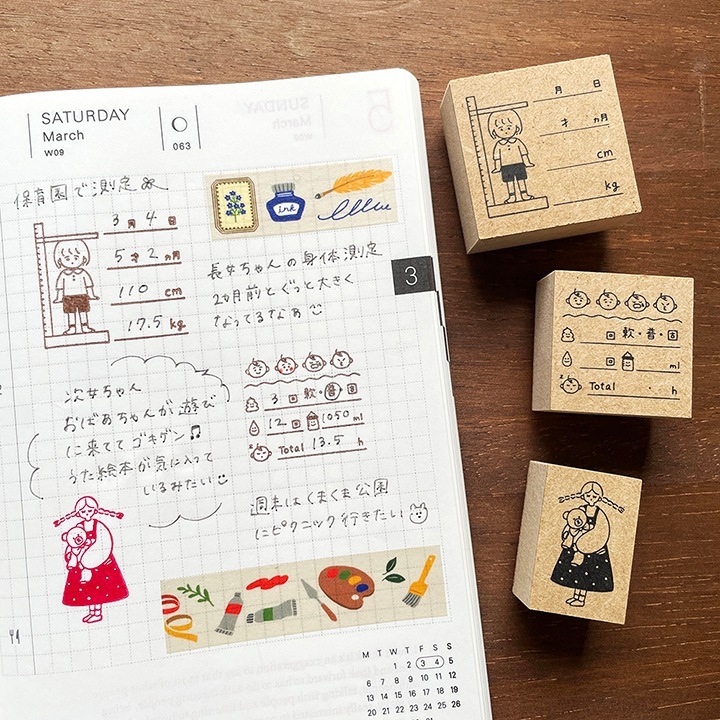 SATURDAY
March
W09
063
SUNDAY
March
W09
5
保育園で測定
3月4日
5才2ヵ月
110 cm
17.5 kg
ink
長女ちゃんの身体測定
2ヵ月前とぐっと大きく
なってるなぁ
3
次女ちゃん
おばあちゃんが遊び
に来ててゴキゲン♫
うた絵本が気に入って
いるみたい
3回 軟・普・固
12回 1050 ml
Total 13.5 h
週末はくまくま公園
にピクニック行きたい
M T W T F S S
1 2 3 4 5
6 7 8 9 10 11 12
13 14 15 16 17 18 19
20 21 22 23 24 25 26
月 日
才 ヵ月
cm
kg
回 軟・普・固
回 ml
Total . h